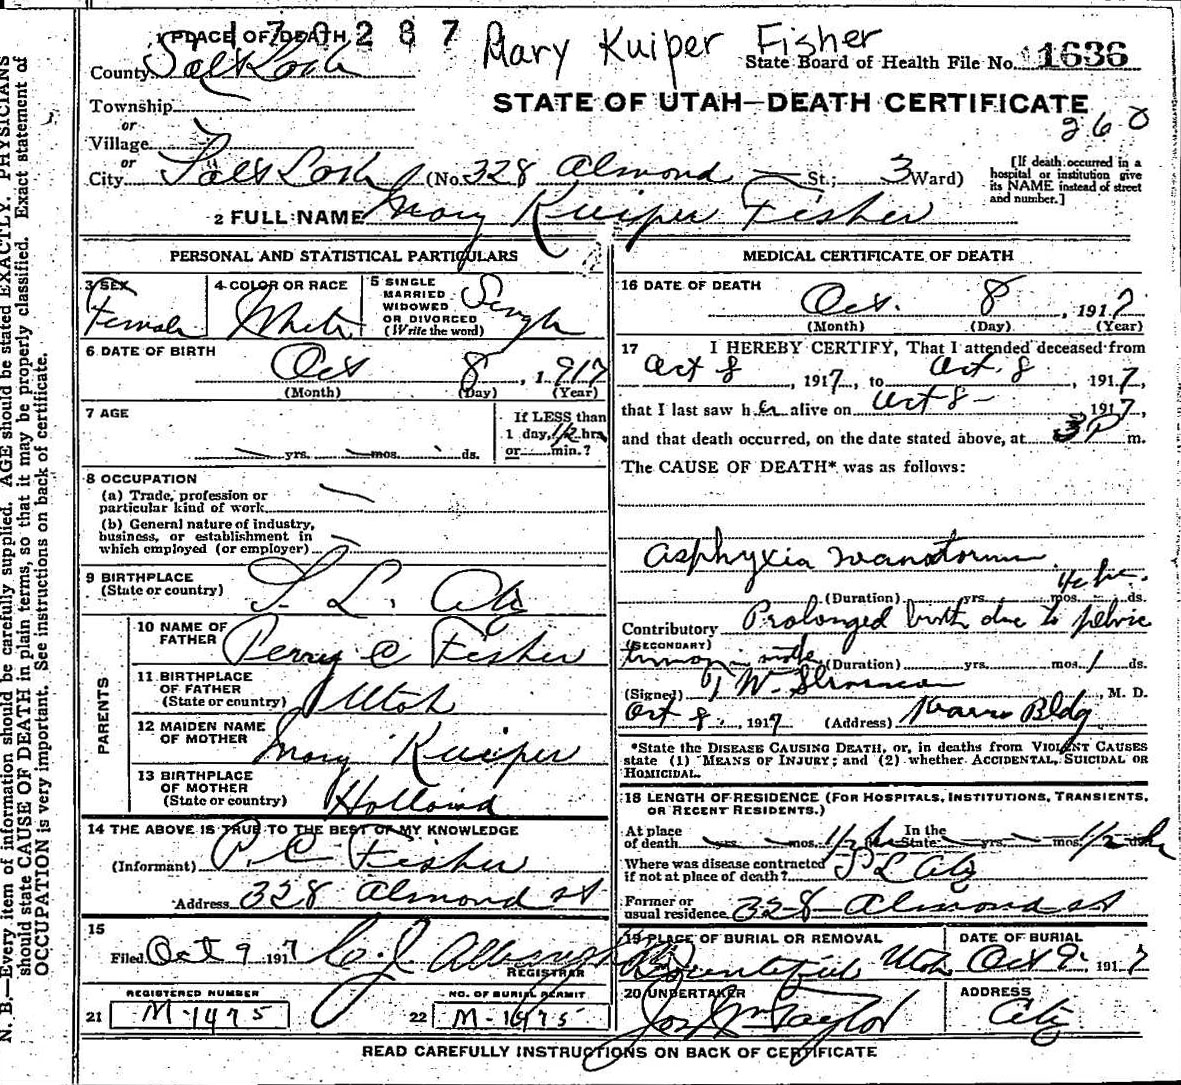 N. B.—Every item of information should be carefully supplied. AGE should be stated EXACTLY. PHYSICIANS
should state CAUSE OF DEATH in plain terms, so that it may be properly classified. Exact statement of
OCCUPATION is very important. See instructions on back of certificate.
1 PLACE OF DEATH
170287
Mary Kuiper Fisher
County Salt Lake
State Board of Health File No. 1636
Township
STATE OF UTAH—DEATH CERTIFICATE
or
260
Village
or
City Salt Lake (No. 328 Almond St.; 3 Ward)
[If death occurred in a
hospital or institution give
its NAME instead of street
and number.]
2 FULL NAME Mary Kuiper Fisher
PERSONAL AND STATISTICAL PARTICULARS
3 SEX
Female
4 COLOR OR RACE
White
5 SINGLE
MARRIED
WIDOWED
OR DIVORCED
(Write the word)
Single
6 DATE OF BIRTH
Oct 8, 1917
(Month) (Day) (Year)
7 AGE
yrs. mos. ds.
If LESS than
1 day, 1/2 hrs
or min.?
8 OCCUPATION
(a) Trade, profession or
particular kind of work
(b) General nature of industry,
business, or establishment in
which employed (or employer)
9 BIRTHPLACE
(State or country)
S. L. City
PARENTS
10 NAME OF
FATHER
Perry C Fisher
11 BIRTHPLACE
OF FATHER
(State or country)
Utah
12 MAIDEN NAME
OF MOTHER
Mary Kuiper
13 BIRTHPLACE
OF MOTHER
(State or country)
Holland
14 THE ABOVE IS TRUE TO THE BEST OF MY KNOWLEDGE
(Informant) P. C Fisher
Address 328 Almond st
15
Filed Oct 9 1917
REGISTRAR
REGISTERED NUMBER
21 M-1475
NO. OF BURIAL PERMIT
22 M-1475
MEDICAL CERTIFICATE OF DEATH
16 DATE OF DEATH
Oct. 8, 1917
(Month) (Day) (Year)
17 I HEREBY CERTIFY, That I attended deceased from
Oct 8, 1917, to Oct. 8, 1917,
that I last saw her alive on Oct 8 1917,
and that death occurred, on the date stated above, at 3 P m.
The CAUSE OF DEATH* was as follows:
Asphyxia
(Duration) yrs. mos. ds.
Contributory Prolonged birth due to pelvic
(SECONDARY)
(Duration) yrs. mos. 1 ds.
(Signed) M. D.
Oct 8, 1917 (Address) Bldg
*State the DISEASE CAUSING DEATH, or, in deaths from VIOLENT CAUSES
state (1) MEANS OF INJURY; and (2) whether ACCIDENTAL, SUICIDAL OR
HOMICIDAL.
18 LENGTH OF RESIDENCE (FOR HOSPITALS, INSTITUTIONS, TRANSIENTS,
OR RECENT RESIDENTS.)
At place
of death yrs. mos. 1/2 h In the
State yrs. mos. 1/2 ds. h
Where was disease contracted
if not at place of death? S L City
Former or
usual residence 328 Almond st
19 PLACE OF BURIAL OR REMOVAL
Bountiful Utah
DATE OF BURIAL
Oct 9. 1917
20 UNDERTAKER
Jos Wm Taylor
ADDRESS
City
READ CAREFULLY INSTRUCTIONS ON BACK OF CERTIFICATE